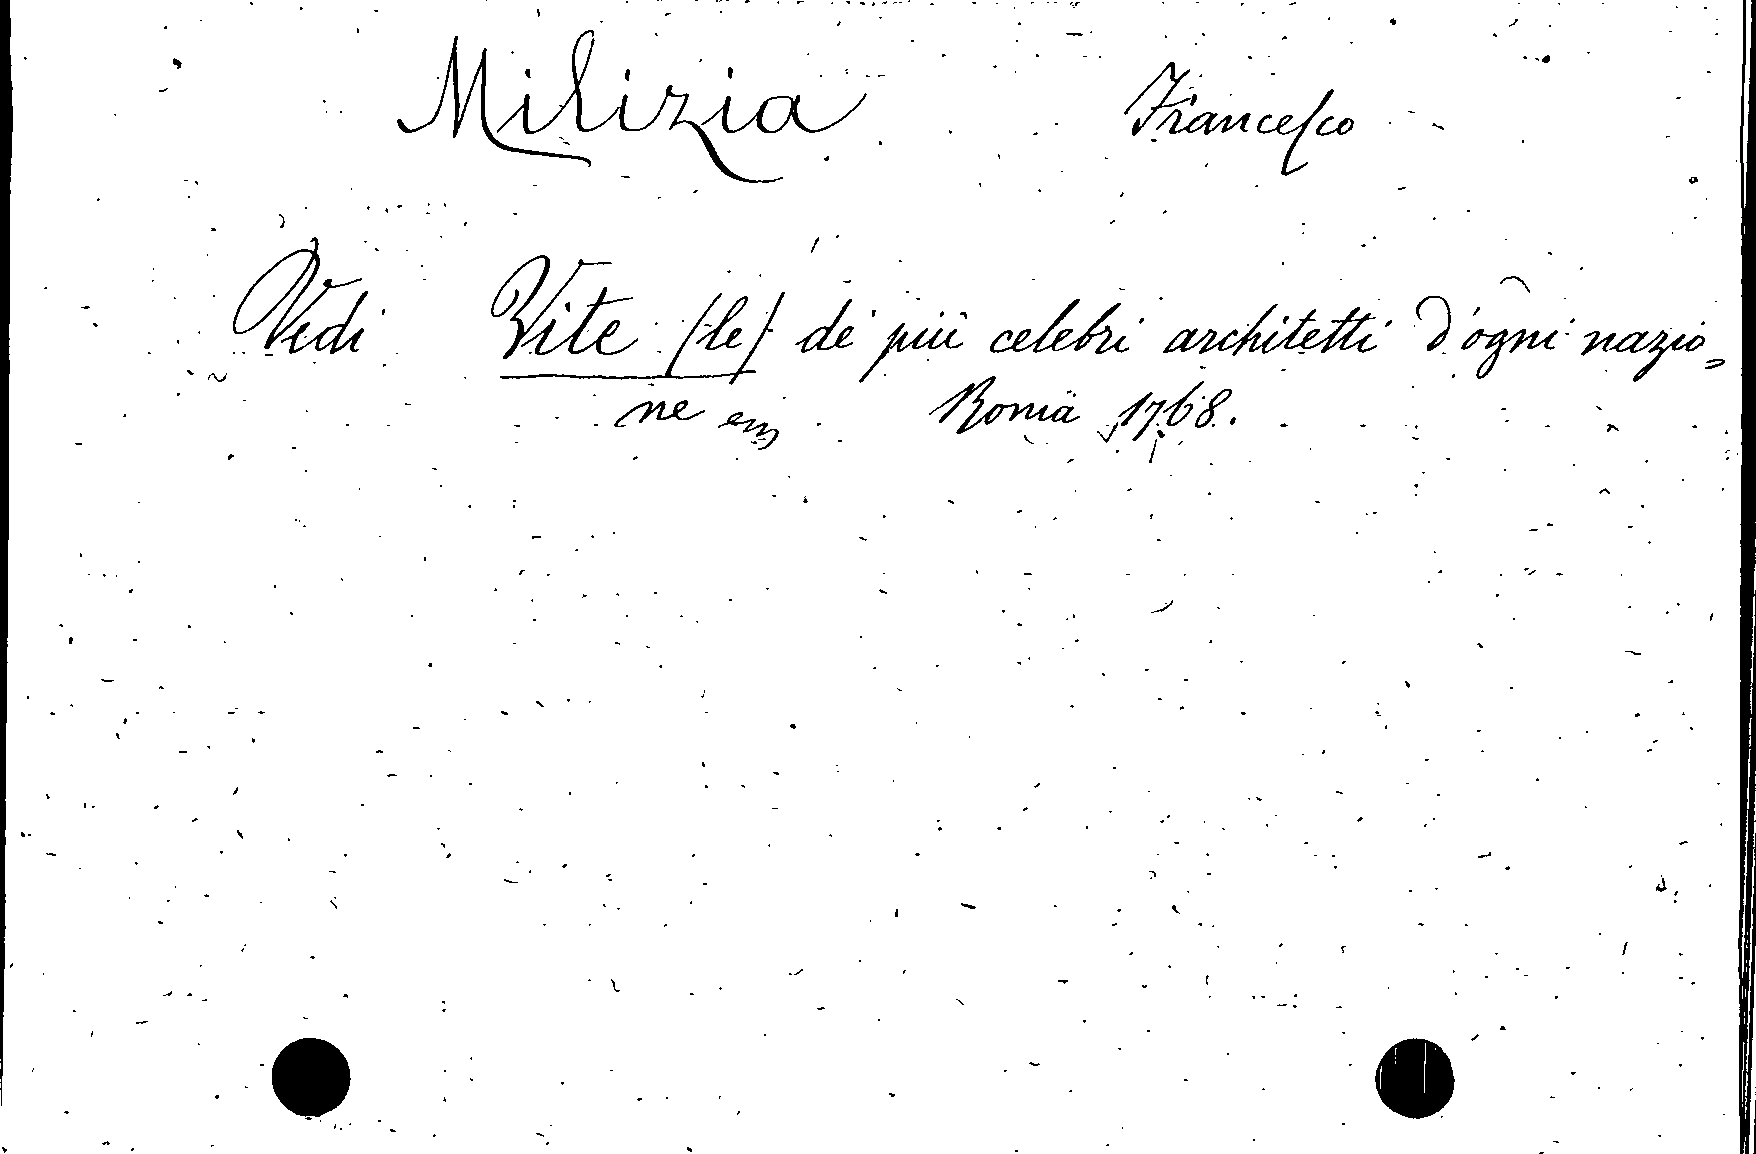 Milizia Francesco
Vedi Vite (le) de' più celebri architetti d'ogni nazio=
ne Roma 1768.